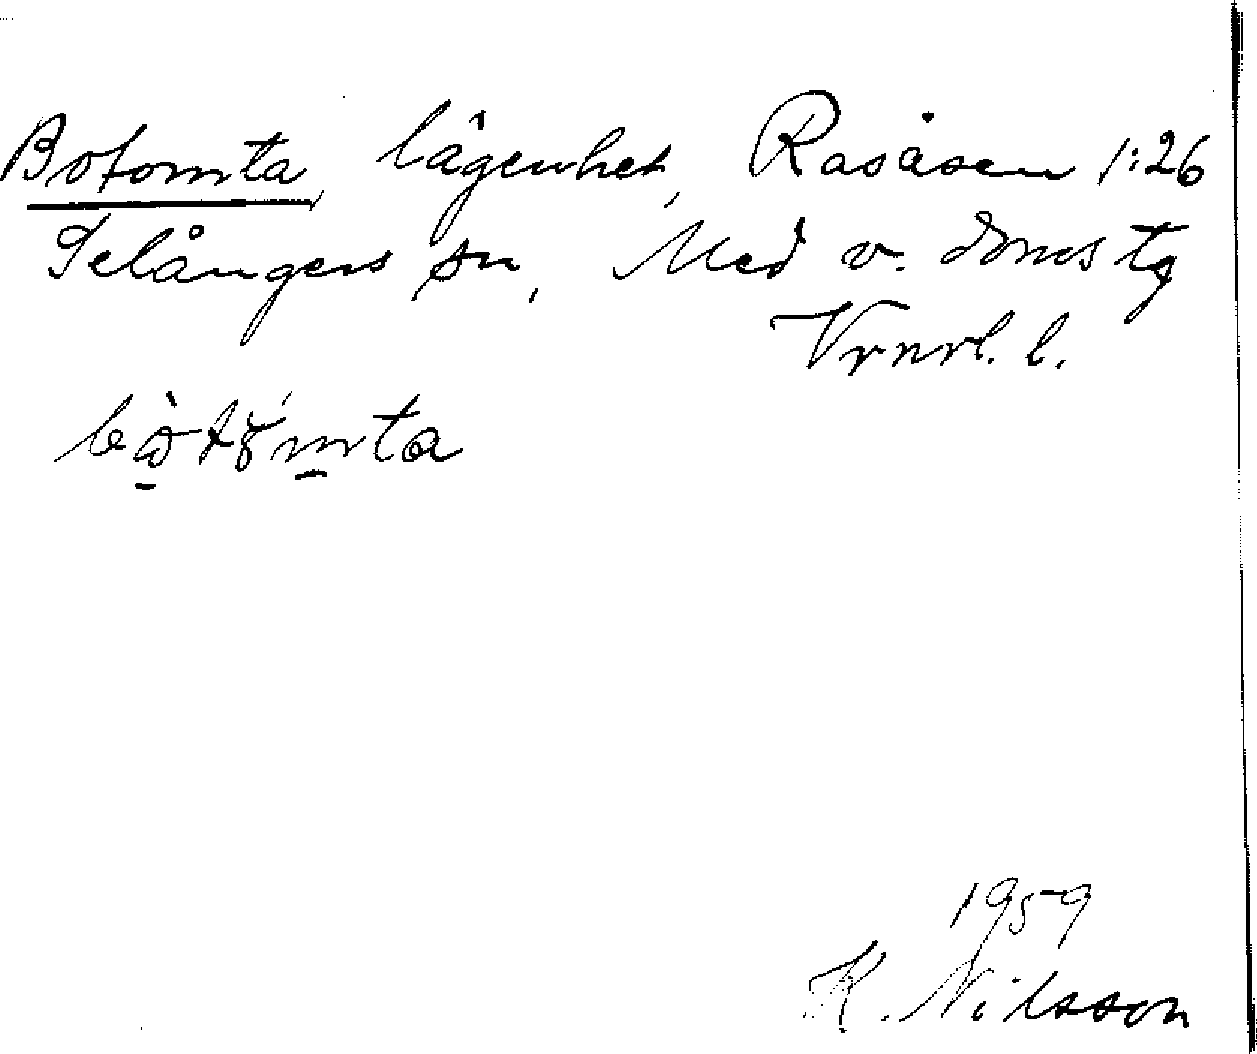 Botomta, lägenhet, Rasåsen 1:26
Selångers sn, Med v. domstg
Vrnrl. l.
1959
K. Nilsson